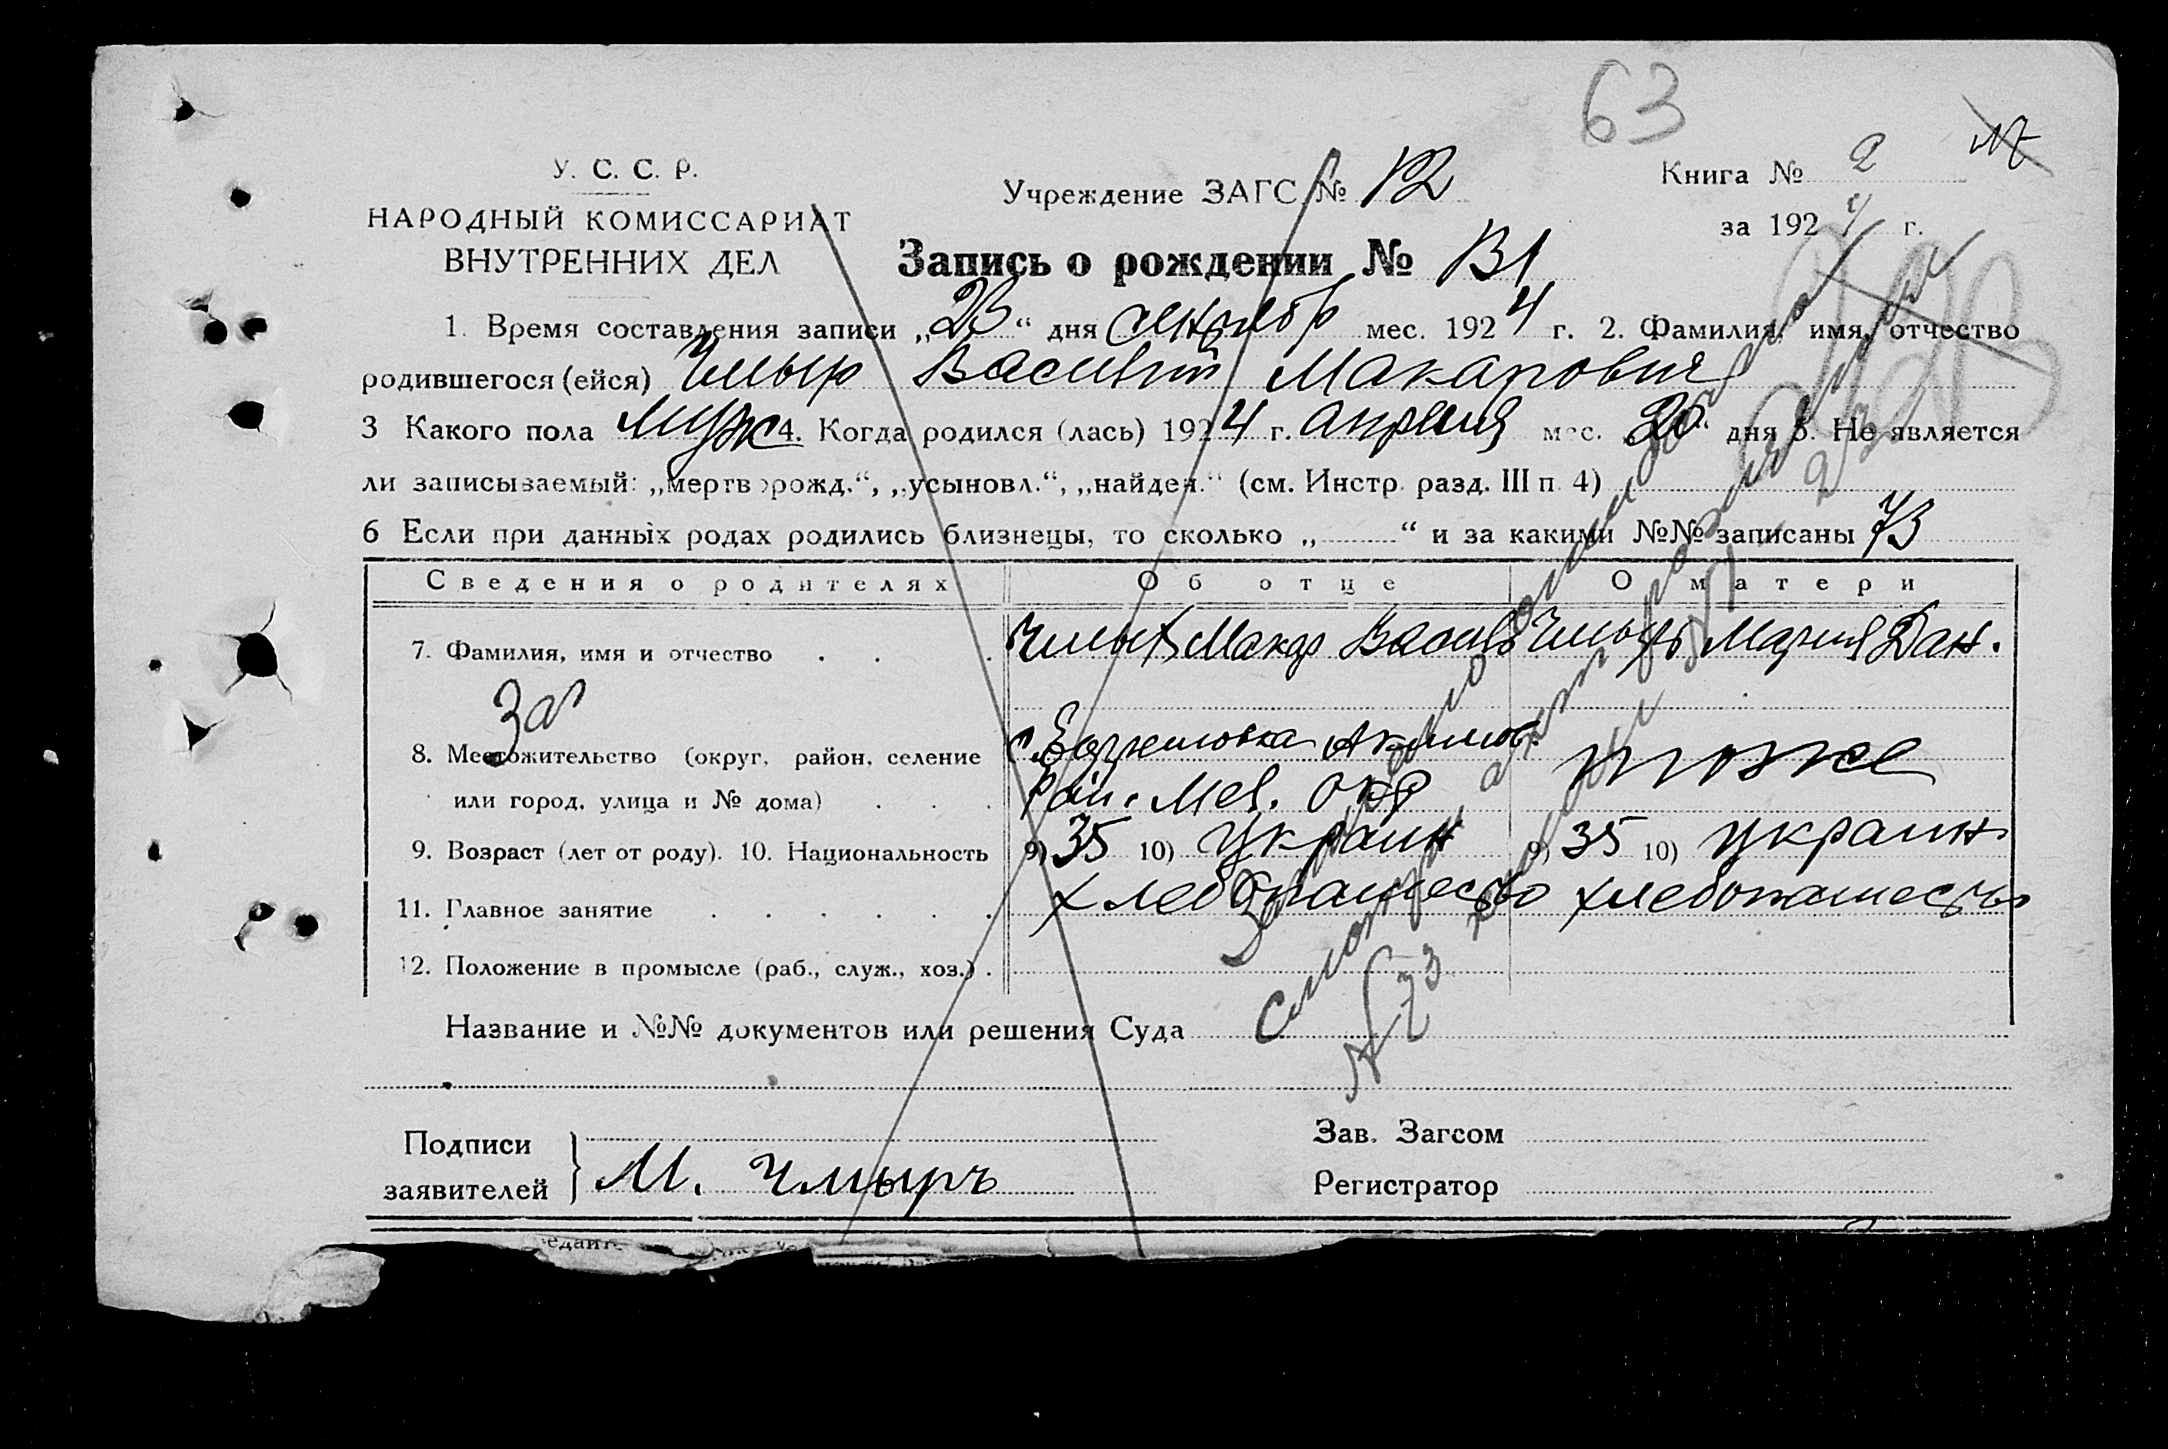 63
У. С. С. Р.
НАРОДНЫЙ КОМИССАРИАТ
ВНУТРЕННИХ ДЕЛ
Учреждение ЗАГС №
Книга № 2
за 1924 г.
Запись о рождении №
1. Время составления записи „23“ дня сентябр мес. 1924 г. 2. Фамилия, имя, отчество
родившегося (ейся) Чмыр Василий Макарович
3 Какого пола Муж 4. Когда родился (лась) 1924 г. апреля мес. „20“ дня 5. Не является
ли записываемый: „мертворожд.“, „усыновл.“, „найден.“ (см. Инстр. разд. III п. 4)
6 Если при данных родах родились близнецы, то сколько „ “ и за какими №№ записаны 73
Сведения о родителях Об отце О матери
7. Фамилия, имя и отчество . . . Чмыр Макар Василь Чмырь Мария Дан.
8. Местожительство (округ, район, селение
или город, улица и № дома) . . . рай. Мел. окр тоже
9. Возраст (лет от роду). 10. Национальность 9) 35 10) украин 9) 35 10) украин
11. Главное занятие . . . . . . хлебопашество хлебопашество
12. Положение в промысле (раб., служ., хоз.) .
Название и №№ документов или решения Суда
Смотри акт
№ 73
Подписи
заявителей } М. Чмыръ
Зав. Загсом
Регистратор